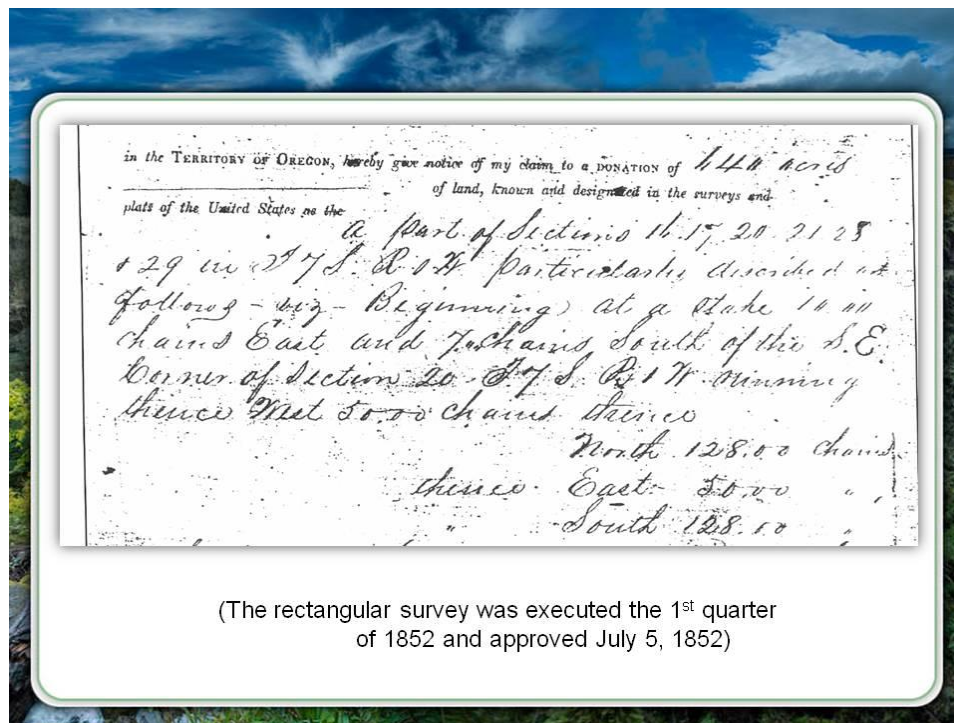 in the TERRITORY OF OREGON, hereby give notice of my claim to a DONATION of 640 acres
of land, known and designated in the surveys and
plats of the United States as the
a part of Sections 16. 17, 20. 21 28
& 29 in T 7 S. R 1 W particularly described as
follows - viz - Beginning at a Stake 10.00
chains East and 7.00 chains South of the S.E.
Corner of Section 20 - T 7 S. R 1 W running
thence West 50.00 chains thence
North 128.00 chains
thence East 50.00 " ,
" South 128.00 "
(The rectangular survey was executed the 1st quarter
of 1852 and approved July 5, 1852)